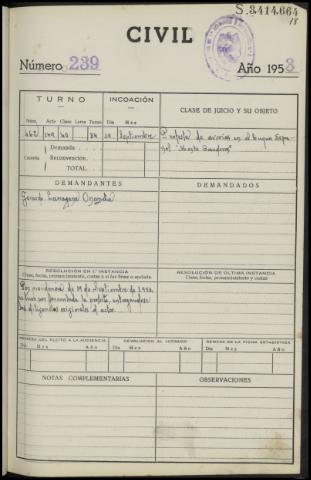 S.3414.664
18
CIVIL
Número 239
Año 1953
TURNO
INCOACIÓN
CLASE DE JUICIO Y SU OBJETO
Núm. Acto Clase Letra Turno Día Mes
Septiembre
Protesta de averías en el buque Espa-
ñol "Monte
Demanda
Cuantía Reconvención
TOTAL
DEMANDANTES
DEMANDADOS
Gerardo Larrañaga
RESOLUCIÓN EN 1.ª INSTANCIA
Clase, fecha, pronunciamiento, costas y si fué firme o apelada.
RESOLUCIÓN DE ÚLTIMA INSTANCIA
Clase, fecha, pronunciamiento y costas
Por providencia de 19 de Septiembre de 1953,
se tuvo por presentada la protesta, entregándose
las diligencias originales al actor.
REMESA DEL PLEITO A LA AUDIENCIA
DEVOLUCIÓN AL JUZGADO
REMESA DE LA FICHA ESTADÍSTICA
Día Mes Año Día Mes Año Día Mes Año
NOTAS COMPLEMENTARIAS
OBSERVACIONES